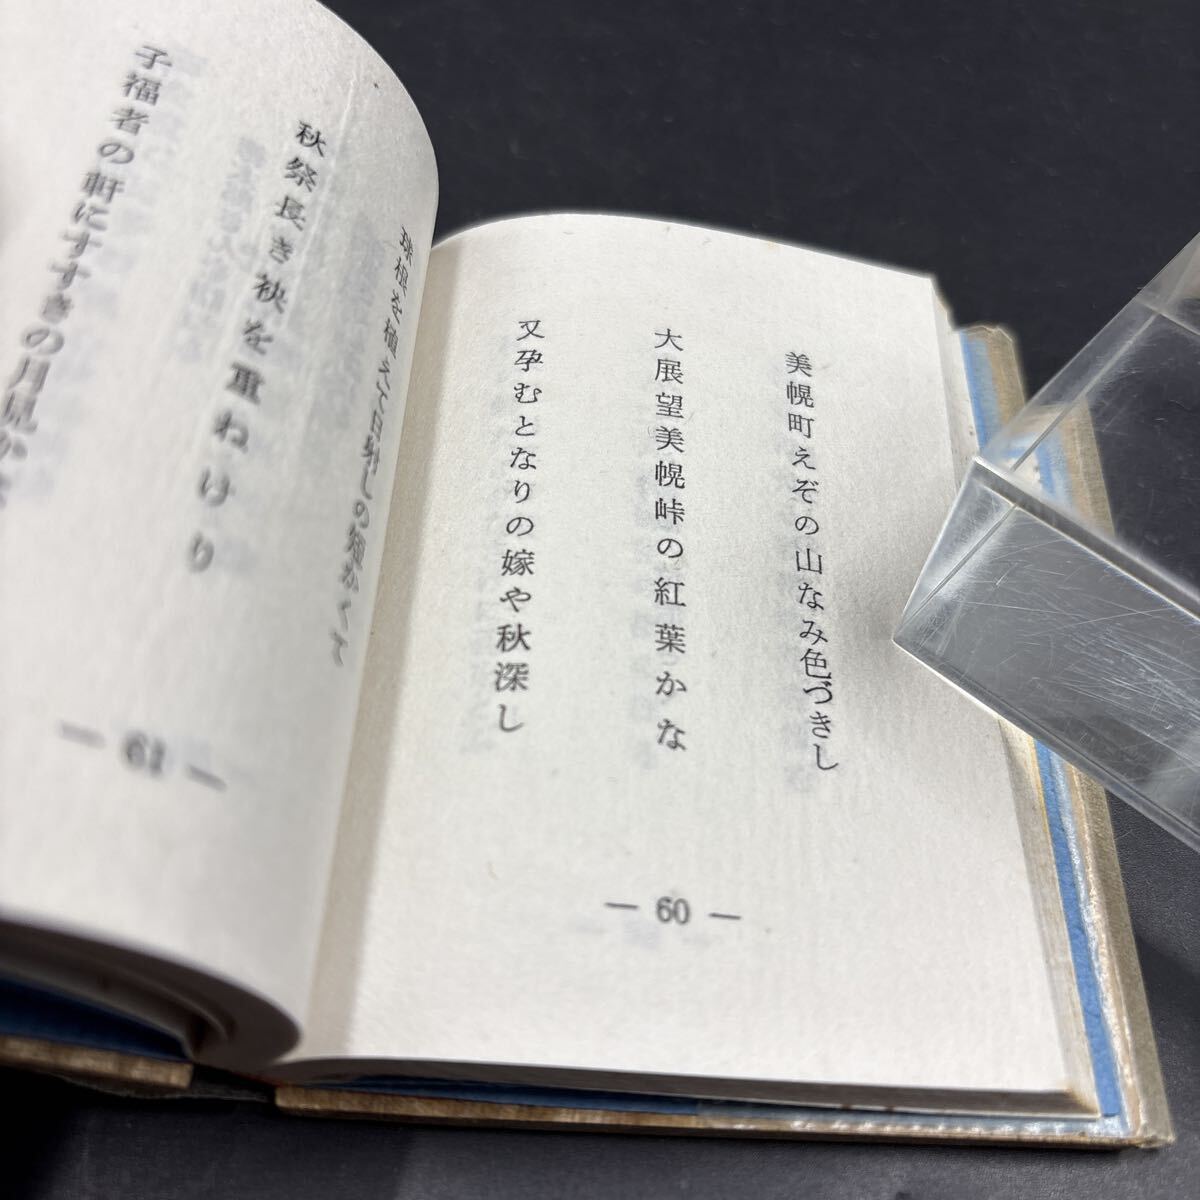 美幌町えぞの山なみ色づきし
大展望美幌峠の紅葉かな
又孕むとなりの嫁や秋深し
— 60 —
球根を植えて日射しの
秋祭長き袂を重ねけり
子福者の軒にすすきの月見か
— 61 —